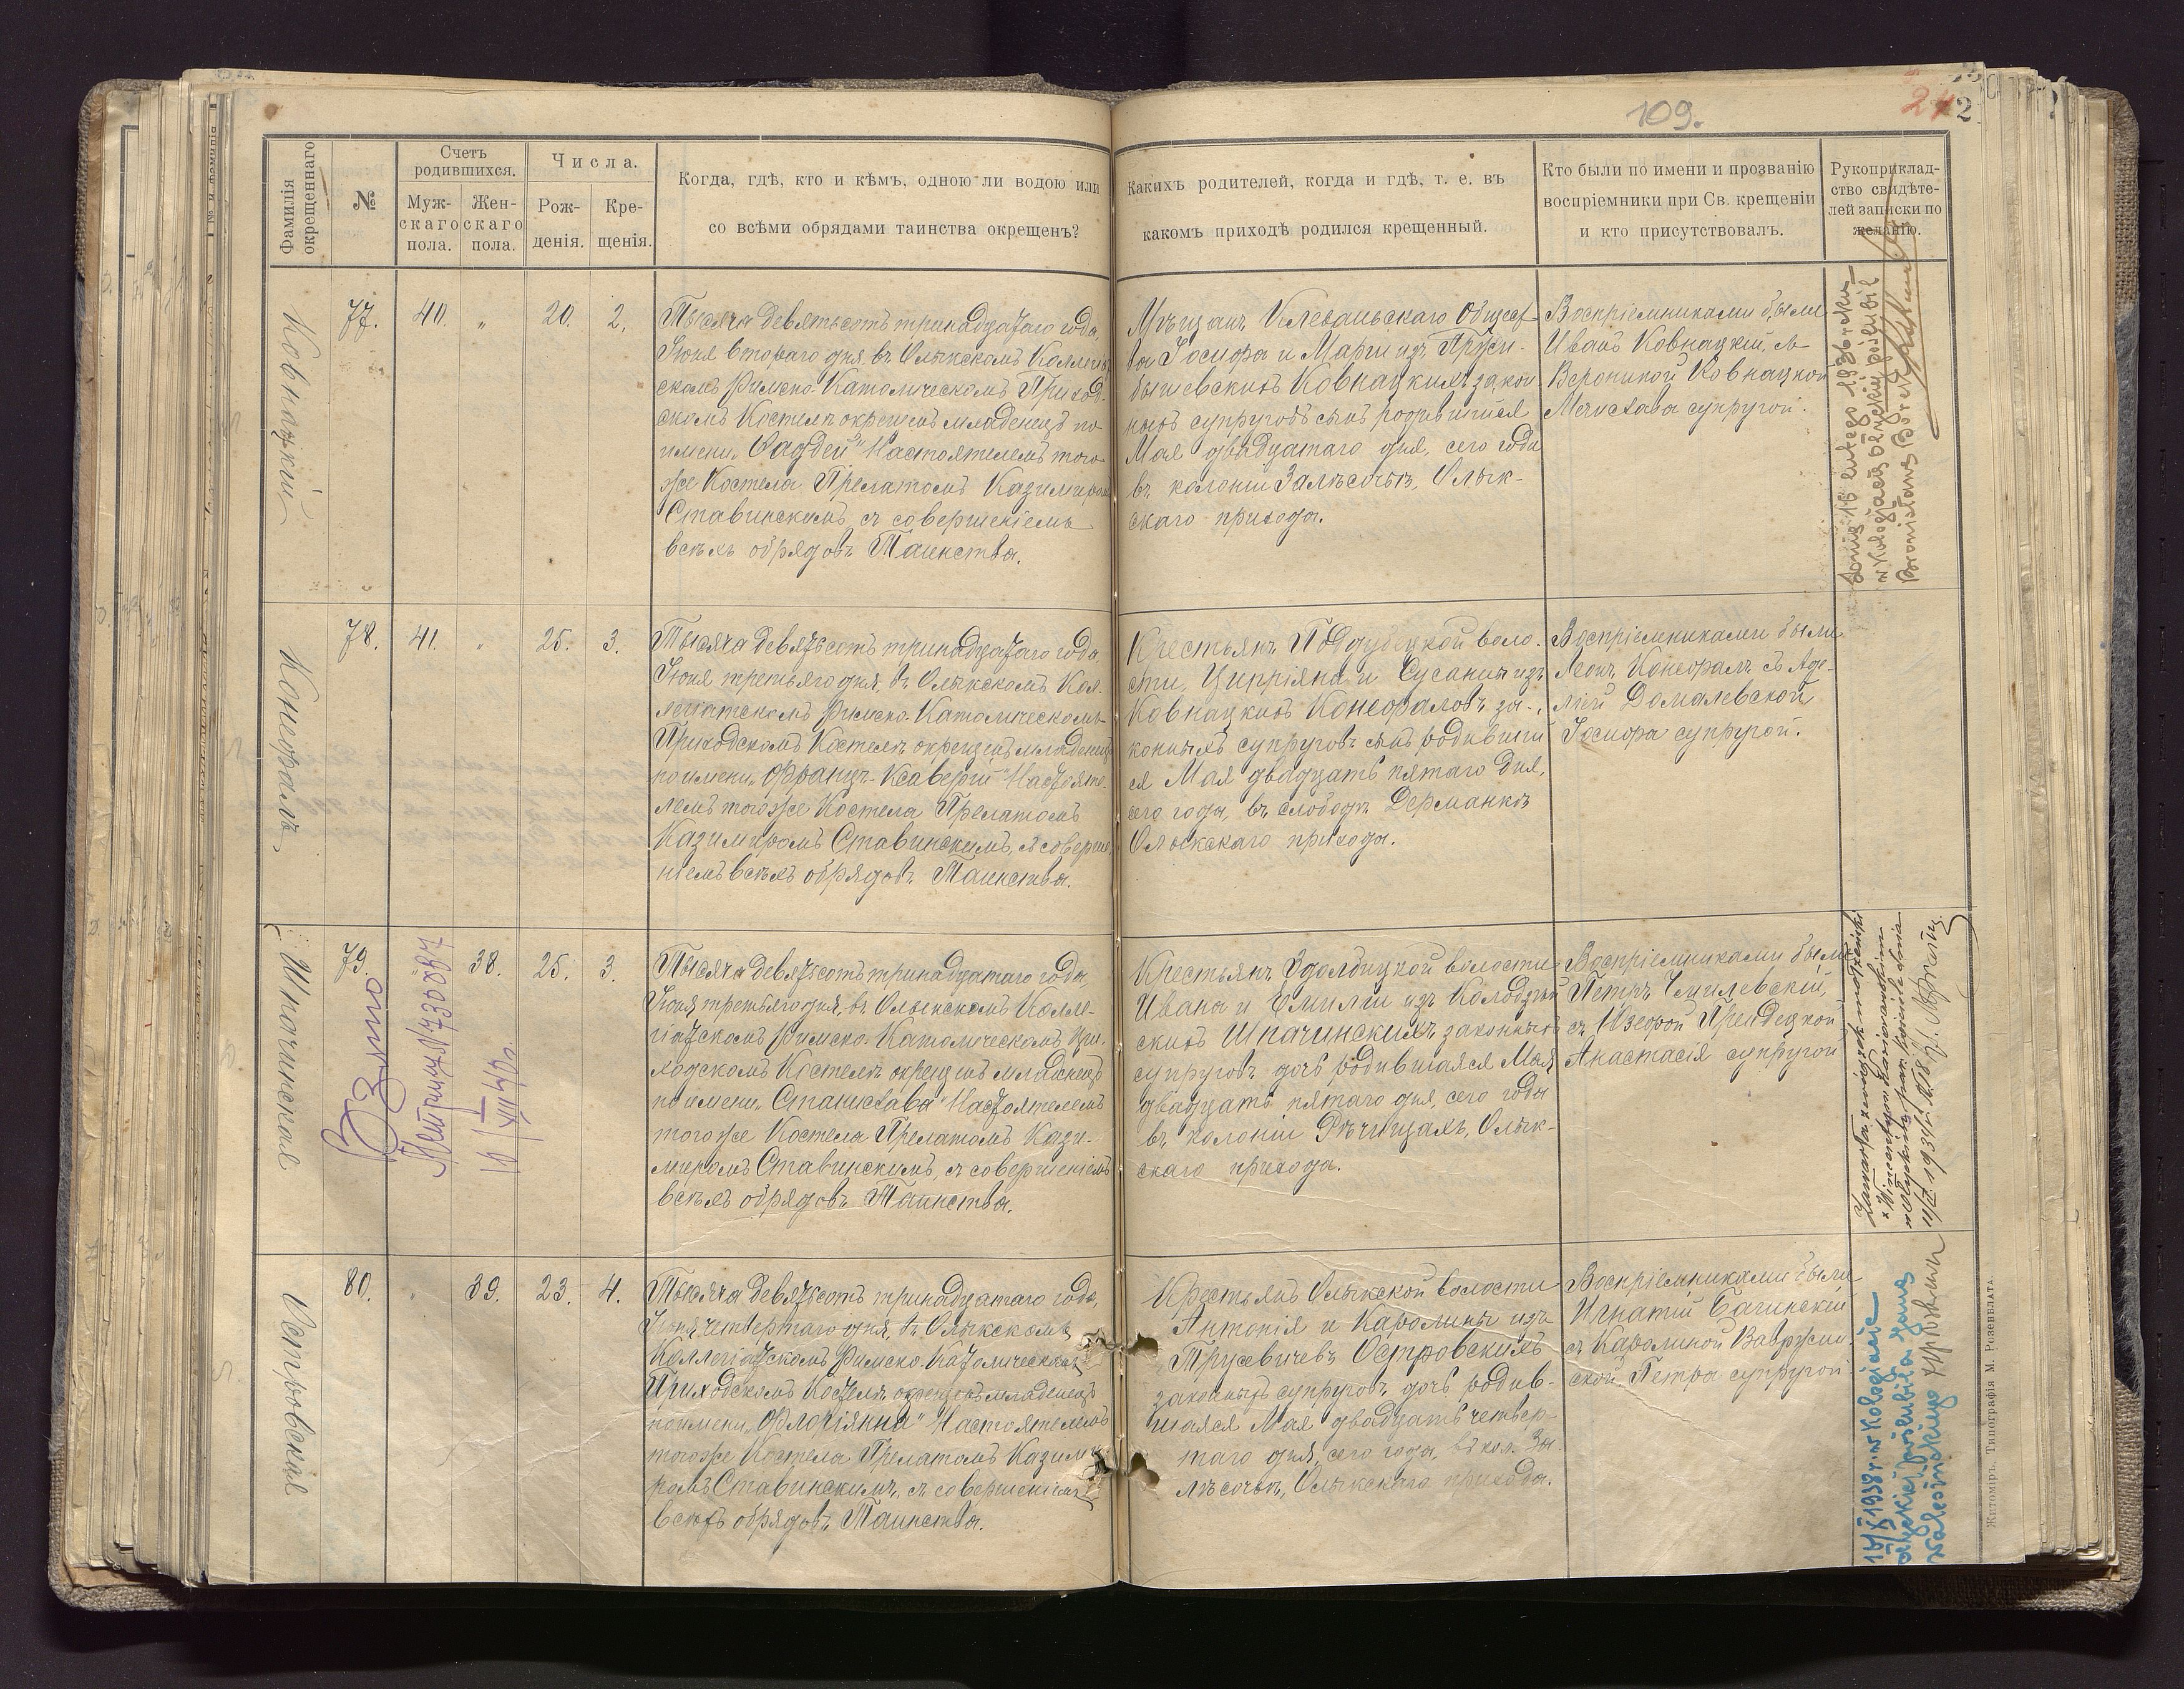 109.
24
2
Фамилія окрещеннаго
№
Счетъ родившихся.
Муж-скаго пола.
Жен-скаго пола.
Числа.
Рож-денія.
Кре-щенія.
Когда, гдѣ, кто и кѣмъ, одною ли водою или
со всѣми обрядами таинства окрещенъ?
Какихъ родителей, когда и гдѣ, т. е. въ
какомъ приходѣ родился крещенный.
Кто были по имени и прозванію
воспріемники при Св. крещеніи
и кто присутствовалъ.
Рукоприклад-
ство свидѣте-
лей записки по
желанію.
Ковнацкій
77.
40.
"
20.
2.
Тысяча девятьсотъ тринадцатаго года,
Іюня втораго дня, въ Олыкскомъ Коллегіат-
скомъ Римско-Католическомъ Приход-
скомъ Костелѣ окрещенъ младенецъ по
имени "Фаддей" Настоятелемъ того
же Костела Прелатомъ Казимиромъ
Ставинскимъ, съ совершеніемъ
всѣхъ обрядовъ Таинства.
Мѣщанъ Клеваньскаго Общест-
ва Іосифа и Маріи изъ
Ковнацкихъ закон
ныхъ супруговъ сынъ родившійся
Мая двадцатаго дня, сего года
въ колоніи Залѣсочьѣ, Олык-
скаго прихода.
Воспріемниками были
Иванъ Ковнацкій, съ
Вероникой Ковнацкой
супругой.
lutego 1936 roku
w Kolegjacie Ołyckiej poślubił
Bronisławę
Конефалъ
78.
41.
"
25.
3.
Тысяча девятьсотъ тринадцатаго года,
Іюня третьяго дня, въ Олыкскомъ Кол-
легіатскомъ Римско-Католическомъ
Приходскомъ Костелѣ окрещенъ младенецъ
по имени "Францъ-Ксаверій" Настояте-
лемъ тогоже Костела Прелатомъ
Казимиромъ Ставинскимъ, съ соверше-
ніемъ всѣхъ обрядовъ Таинства.
Крестьянъ Поддубецкой воло-
сти, Ципріяна и Сусанны изъ
Ковнацкихъ Конефаловъ за-
конныхъ супруговъ сынъ родившій
ся Мая двадцать пятаго дня,
сего года, въ слободѣ Дерманкѣ
Олыкскаго прихода.
Воспріемниками были
Леонъ Конефалъ съ Аде-
лией Домалевской
Іосифа супругой.
Шпачинская
79.
"
38.
25.
3.
Взято
Метрика № 730894
10/XII 47 г.
Тысяча девятьсотъ тринадцатаго года,
Іюня третьяго дня, въ Олыкскомъ Колле-
гіатскомъ Римско-Католическомъ При-
ходскомъ Костелѣ окрещенъ младенецъ
по имени "Станислава" Настоятелемъ
того же Костела Прелатомъ Кази-
миромъ Ставинскимъ, съ совершеніемъ
всѣхъ обрядовъ Таинства.
Крестьянъ Здолбицкой волости
Ивана и Емиліи изъ Колодзѣй
скихъ Шпачинскихъ, законныхъ
супруговъ дочь родившаяся Мая
двадцать пятаго дня, сего года
въ колоніи Рѣчищахъ, Олык-
скаго прихода.
Воспріемниками были
Петръ
съ
Анастасія супругой
Zawarła związek małżeński
z Wincentym
Островская
80.
"
39.
23.
4.
Тысяча девятьсотъ тринадцатаго года,
Іюня четвертаго дня, въ Олыкскомъ
Коллегіатскомъ Римско-Католическомъ
Приходскомъ Костелѣ окрещенъ младенецъ
по имени "Флоріянна" Настоятелемъ
тогоже Костела Прелатомъ Казими-
ромъ Ставинскимъ, съ совершеніемъ
всѣхъ обрядовъ Таинства.
Крестьянъ Олыкской волости
Антонія и Каролины изъ
Трусевичевъ Островскихъ
законныхъ супруговъ дочь родив-
шаяся Мая двадцать четвер-
таго дня, сего года, въ кол. За-
лѣсочьѣ, Олыкскаго прихода.
Воспріемниками были
Игнатій Багинскій
съ Каролиной
ской, Петра супругой.
1938 r. w Kolegiacie
ołyckiej poślubiła
Житоміръ. Типографія М. Розенблата.